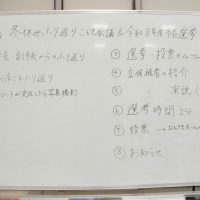 冬休みふり返りこども会議&令和8年度市長選挙
長 副市長からのふり返り
ふり返り
シートが完成したら写真撮影
③ 選挙・投票のルール
④ 立候補者の紹介
⑤ 〃 演説
⑥ 選挙時間 2分
⑦ 投票 →
⑧ お知らせ